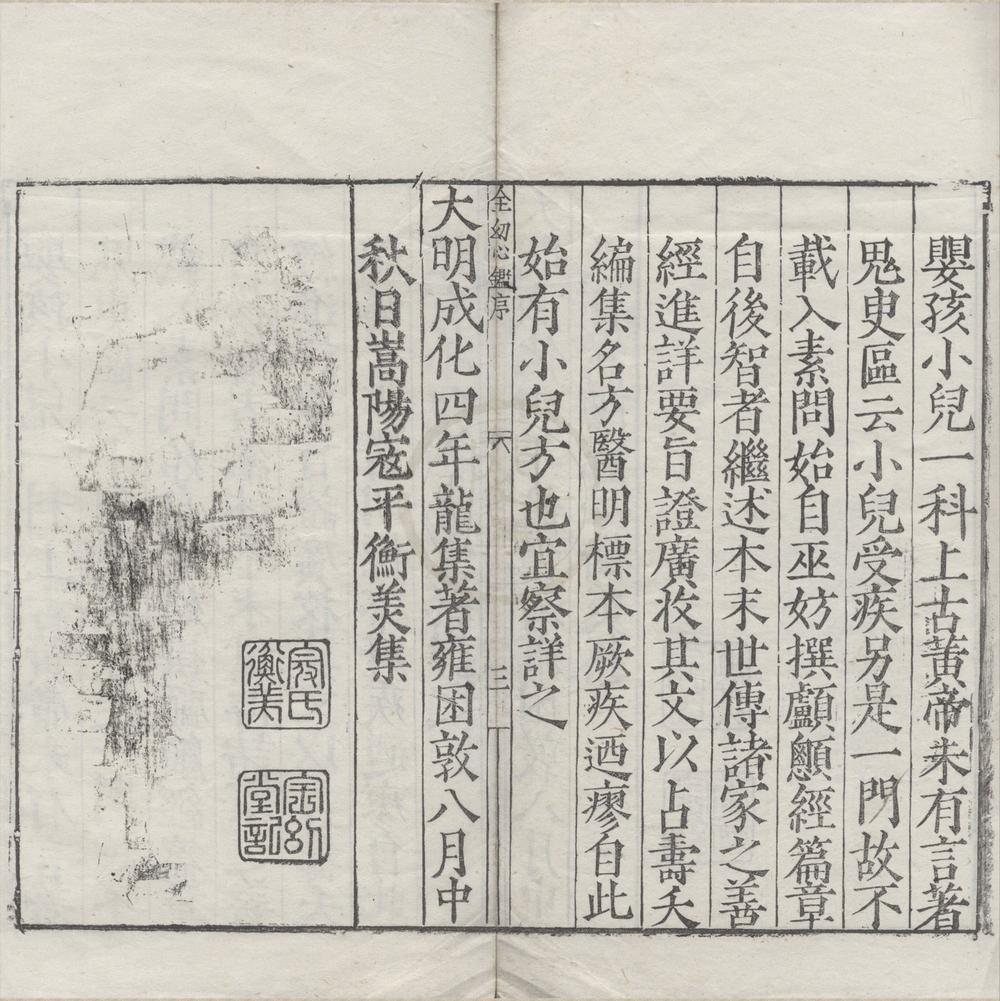 嬰孩小兒一科上古黄帝未有言著
鬼臾區云小兒受疾另是一門故不
載入素問始自巫妨撰顱顖經篇章
自後智者繼述本末世傳諸家之善
經進詳要旨證廣收其文以占壽夭
編集名方醫明標本厥疾迺瘳自此
始有小兒方也宜察詳之
全幼心鑑序
三
大明成化四年龍集著雍困敦八月中
秋日嵩陽寇平衡美集
寇氏衡美
全幼堂記